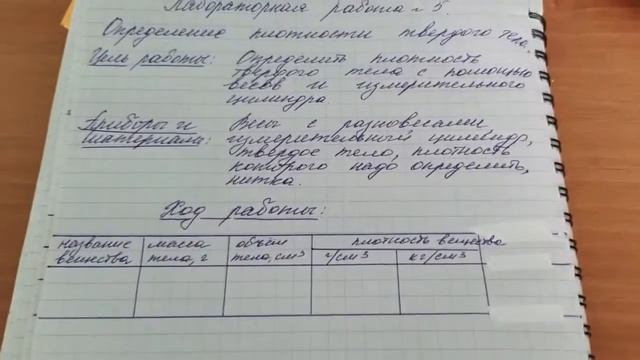 Лабораторная работа № 5.
Определение плотности твердого тела.
Цель работы: Определить плотность
твердого тела с помощью
весов и измерительного
цилиндра
Приборы и материалы: Весы с разновесами
измерительный цилиндр,
твердое тело, плотность
которого надо определить,
нитка.
Ход работы:
название вещества | масса тела, г | объем тела, см³ | плотность вещества
г/см³ | кг/см³